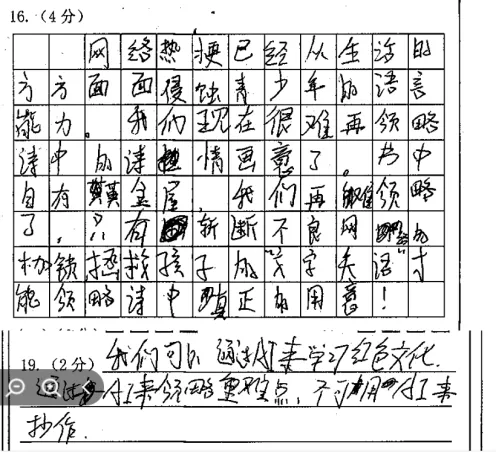 16.(4分)
网络热梗已经从生活的
方方面面侵蚀青少年的语言
能力。我们现在很难再领略
诗中的诗情画意了。书中
自有黄金屋,我们再难领略
了,只有斩断不良网络的
枷锁拯救孩子的"文字失语"才
能领略诗中真正的用意!
19.(2分)我们可以通过AI来学习红色文化
通过AI来领略重难点,不可用AI来
抄作.